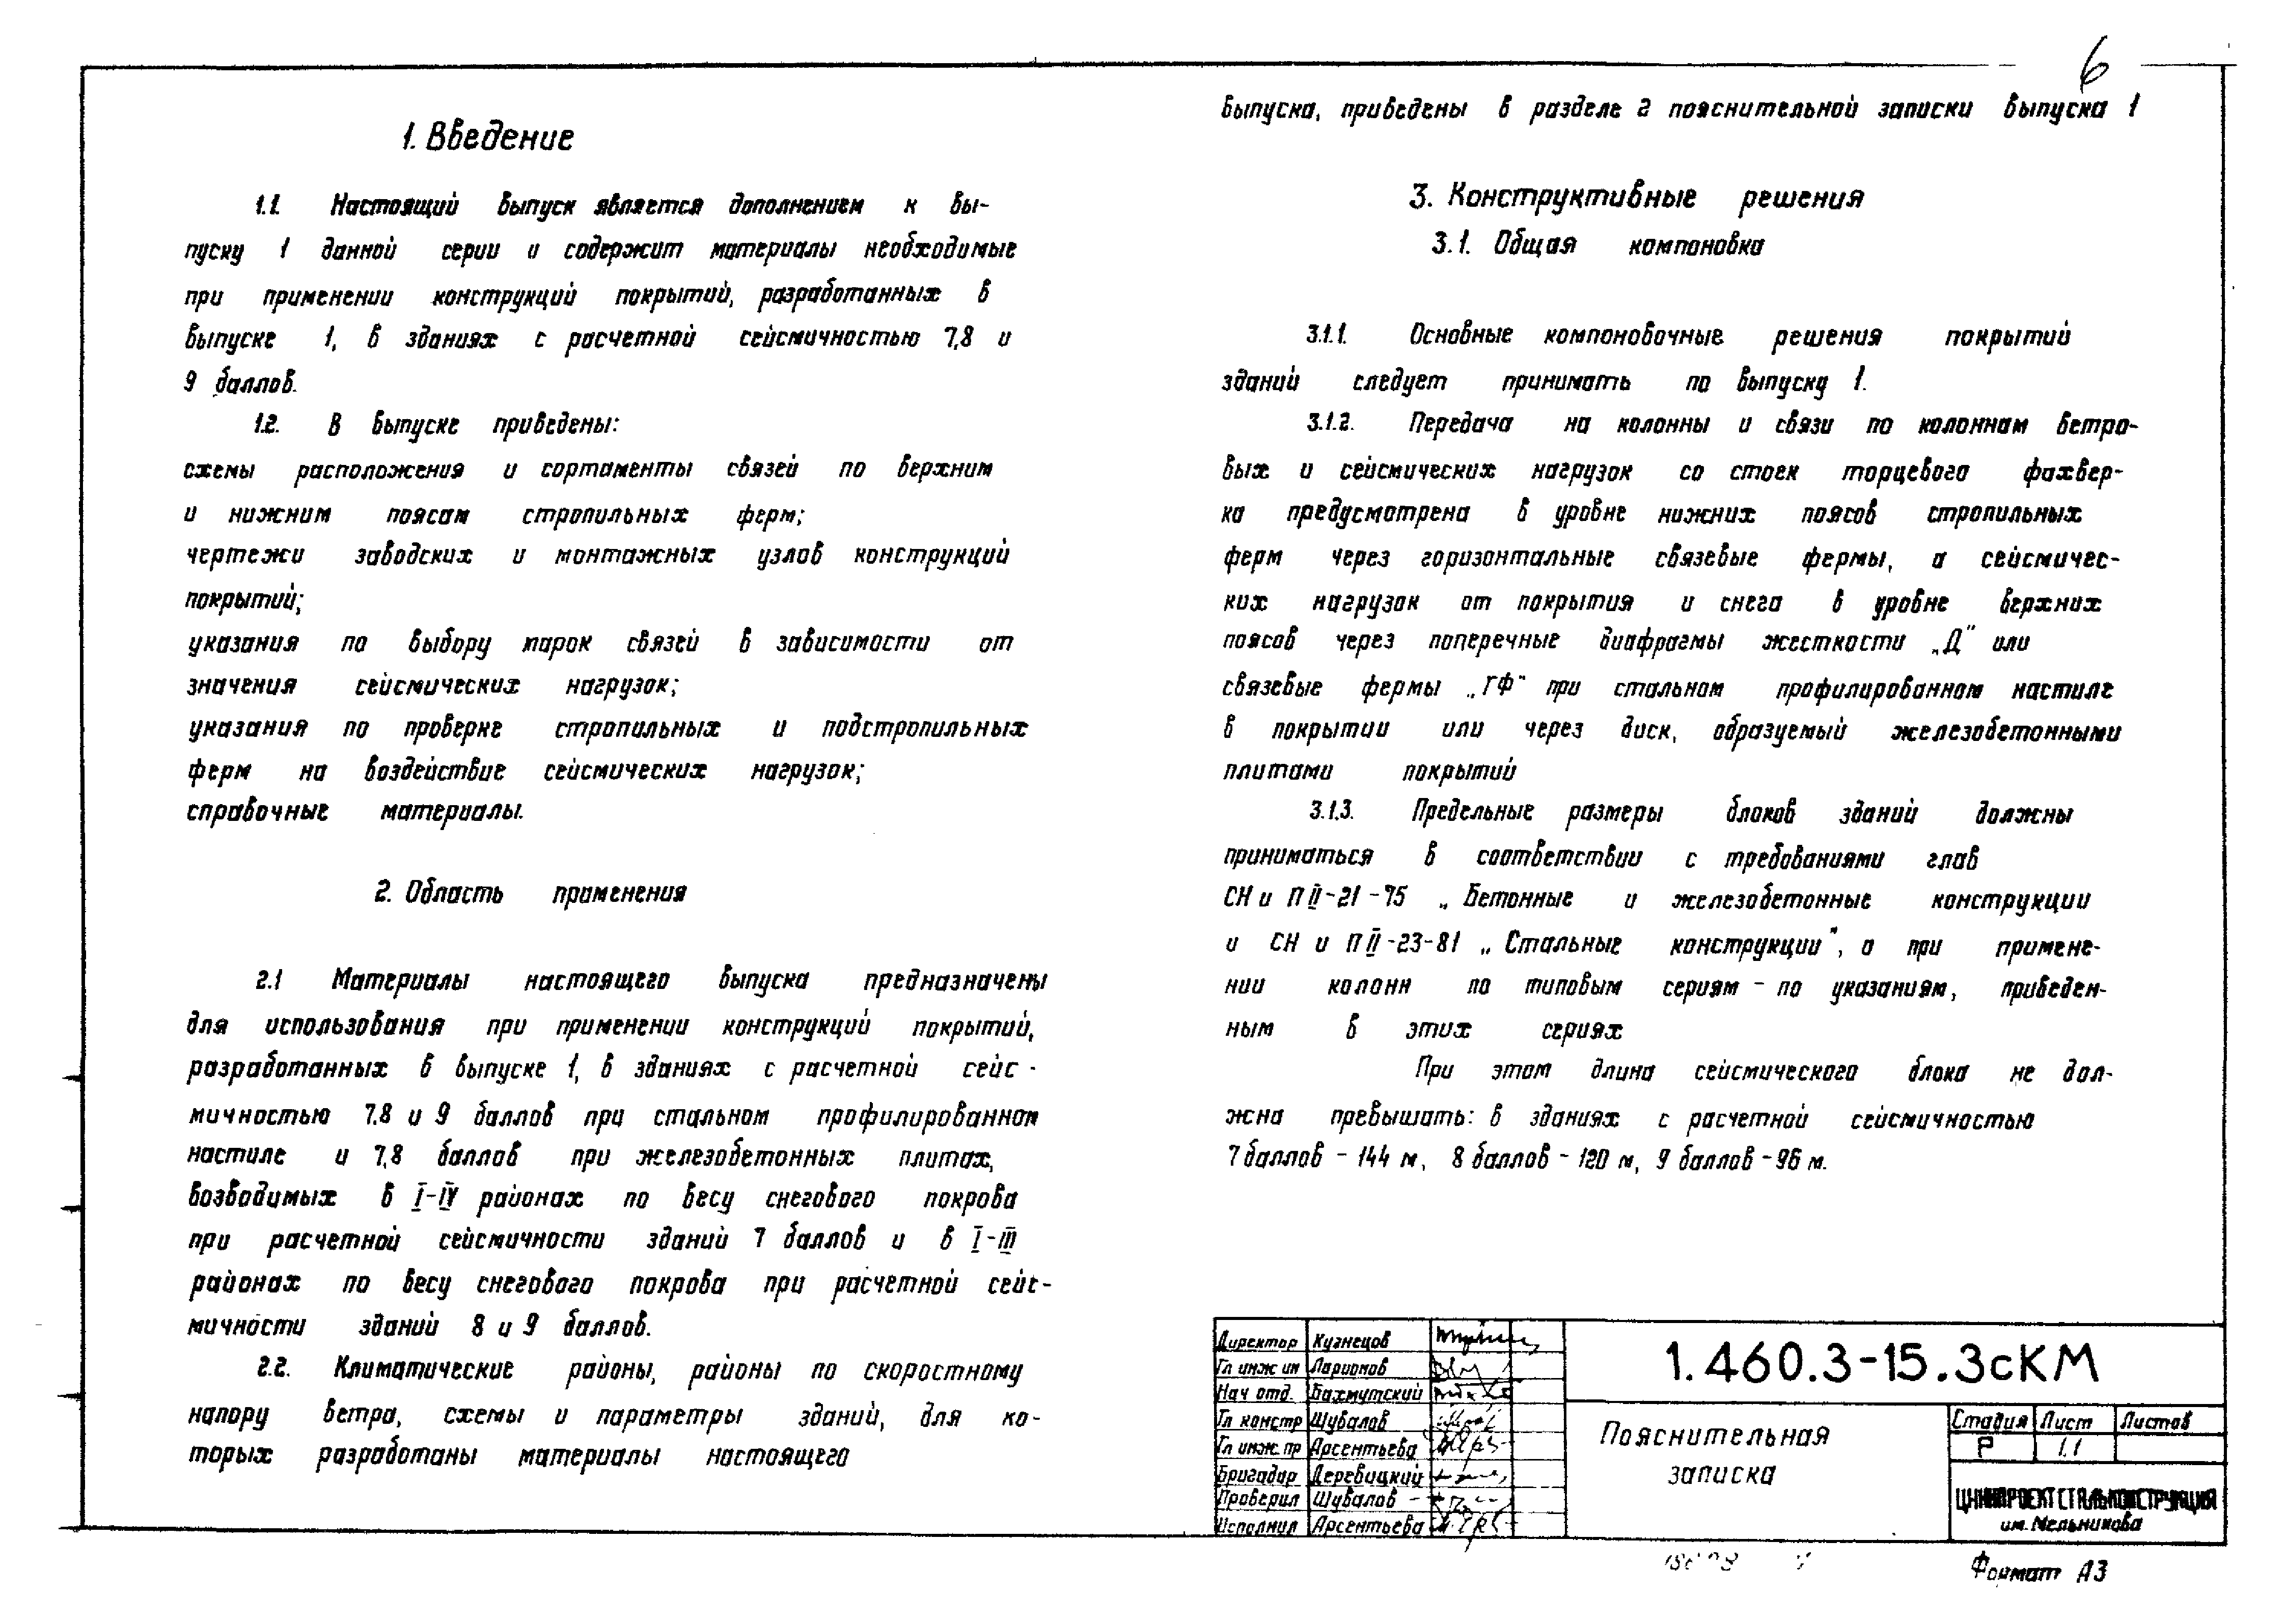 6
1. Введение
1.1. Настоящий выпуск является дополнением к вы-
пуску 1 данной серии и содержит материалы необходимые
при применении конструкций покрытий, разработанных в
выпуске 1, в зданиях с расчетной сейсмичностью 7,8 и
9 баллов.
1.2. В выпуске приведены:
схемы расположения и сортаменты связей по верхним
и нижним поясам стропильных ферм;
чертежи заводских и монтажных узлов конструкций
покрытий;
указания по выбору марок связей в зависимости от
значения сейсмических нагрузок;
указания по проверке стропильных и подстропильных
ферм на воздействие сейсмических нагрузок;
справочные материалы.
2. Область применения
2.1 Материалы настоящего выпуска предназначены
для использования при применении конструкций покрытий,
разработанных в выпуске 1, в зданиях с расчетной сейс-
мичностью 7.8 и 9 баллов при стальном профилированном
настиле и 7,8 баллов при железобетонных плитах,
возводимых в I-IV районах по весу снегового покрова
при расчетной сейсмичности зданий 7 баллов и в I-III
районах по весу снегового покрова при расчетной сейс-
мичности зданий 8 и 9 баллов.
2.2. Климатические районы, районы по скоростному
напору ветра, схемы и параметры зданий, для ко-
торых разработаны материалы настоящего
выпуска, приведены в разделе 2 пояснительной записки выпуска 1
3. Конструктивные решения
3.1. Общая компоновка
3.1.1. Основные компоновочные решения покрытий
зданий следует принимать по выпуску 1.
3.1.2. Передача на колонны и связи по колоннам ветро-
вых и сейсмических нагрузок со стоек торцевого фахвер-
ка предусмотрена в уровне нижних поясов стропильных
ферм через горизонтальные связевые фермы, а сейсмичес-
ких нагрузок от покрытия и снега в уровне верхних
поясов через поперечные диафрагмы жесткости „Д" или
связевые фермы „ГФ" при стальном профилированном настиле
в покрытии или через диск, образуемый железобетонными
плитами покрытий
3.1.3. Предельные размеры блоков зданий должны
приниматься в соответствии с требованиями глав
СН и П II-21-75 „Бетонные и железобетонные конструкции
и СН и П II-23-81 „Стальные конструкции", а при примене-
нии колонн по типовым сериям - по указаниям, приведен-
ным в этих сериях
При этом длина сейсмического блока не дол-
жна превышать: в зданиях с расчетной сейсмичностью
7 баллов - 144 м, 8 баллов - 120 м, 9 баллов - 96 м.
Директор Кузнецов
Гл инж ин Ларионов
Нач отд. Бахмутский
Гл констр Шувалов
Гл инж. пр Арсентьева
Бригадир Деревицкий
Проверил Шувалов
Исполнил Арсентьева
1.460.3-15.3сКМ
Пояснительная
записка
Стадия Лист Листов
Р 1.1
ЦНИИПРОЕКТСТАЛЬКОНСТРУКЦИЯ
им. Мельникова
Формат А3